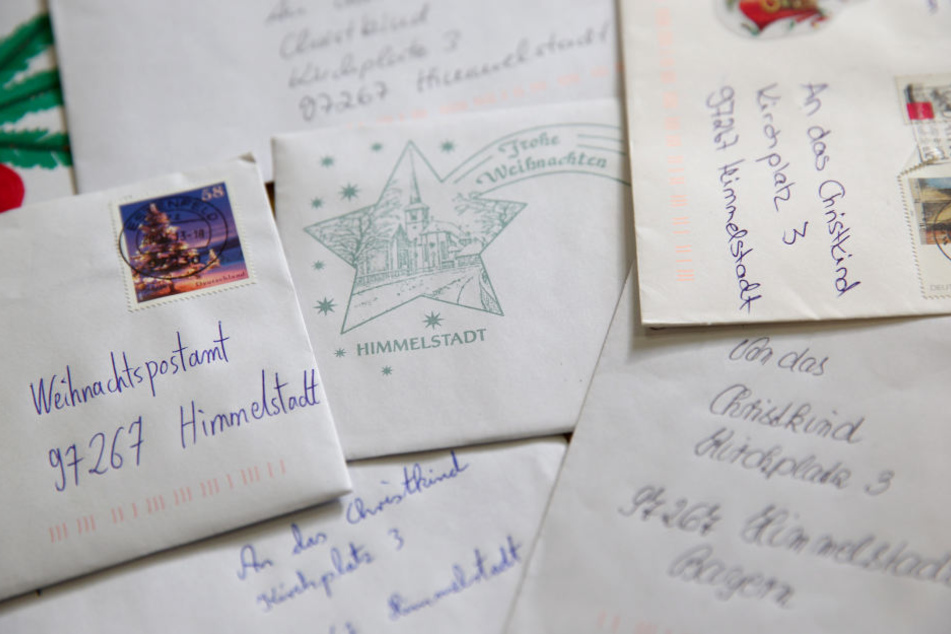 Christkind
Kirchplatz 3
97267 Himmelstadt
Frohe
Weihnachten
HIMMELSTADT
58
Deutschland
Weihnachtspostamt
97267 Himmelstadt
An das Christkind
Kirchplatz 3
97267 Himmelstadt
An das Christkind
Kirchplatz 3
Himmelstadt
das
Christkind
Kirchplatz 3
97267 Himmelstadt
Bayern